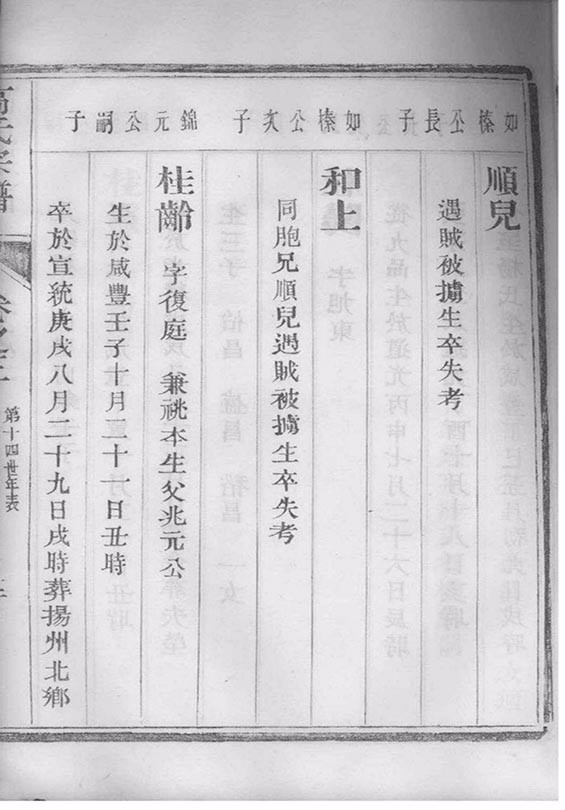 如榛公長子
順兒
遇賊被擄生卒失考
如榛公次子
和上
同胞兄順兒遇賊被擄生卒失考
錦元公嗣子
桂齡 字復庭 兼祧本生父兆元公
生於咸豐壬子十月二十一日丑時
卒於宣統庚戌八月二十九日戌時葬揚州北鄉
氏宗譜
第十四世年表